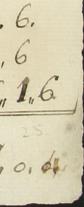 . 6.
, 6
„ 1„ 6
25
, 0. 4